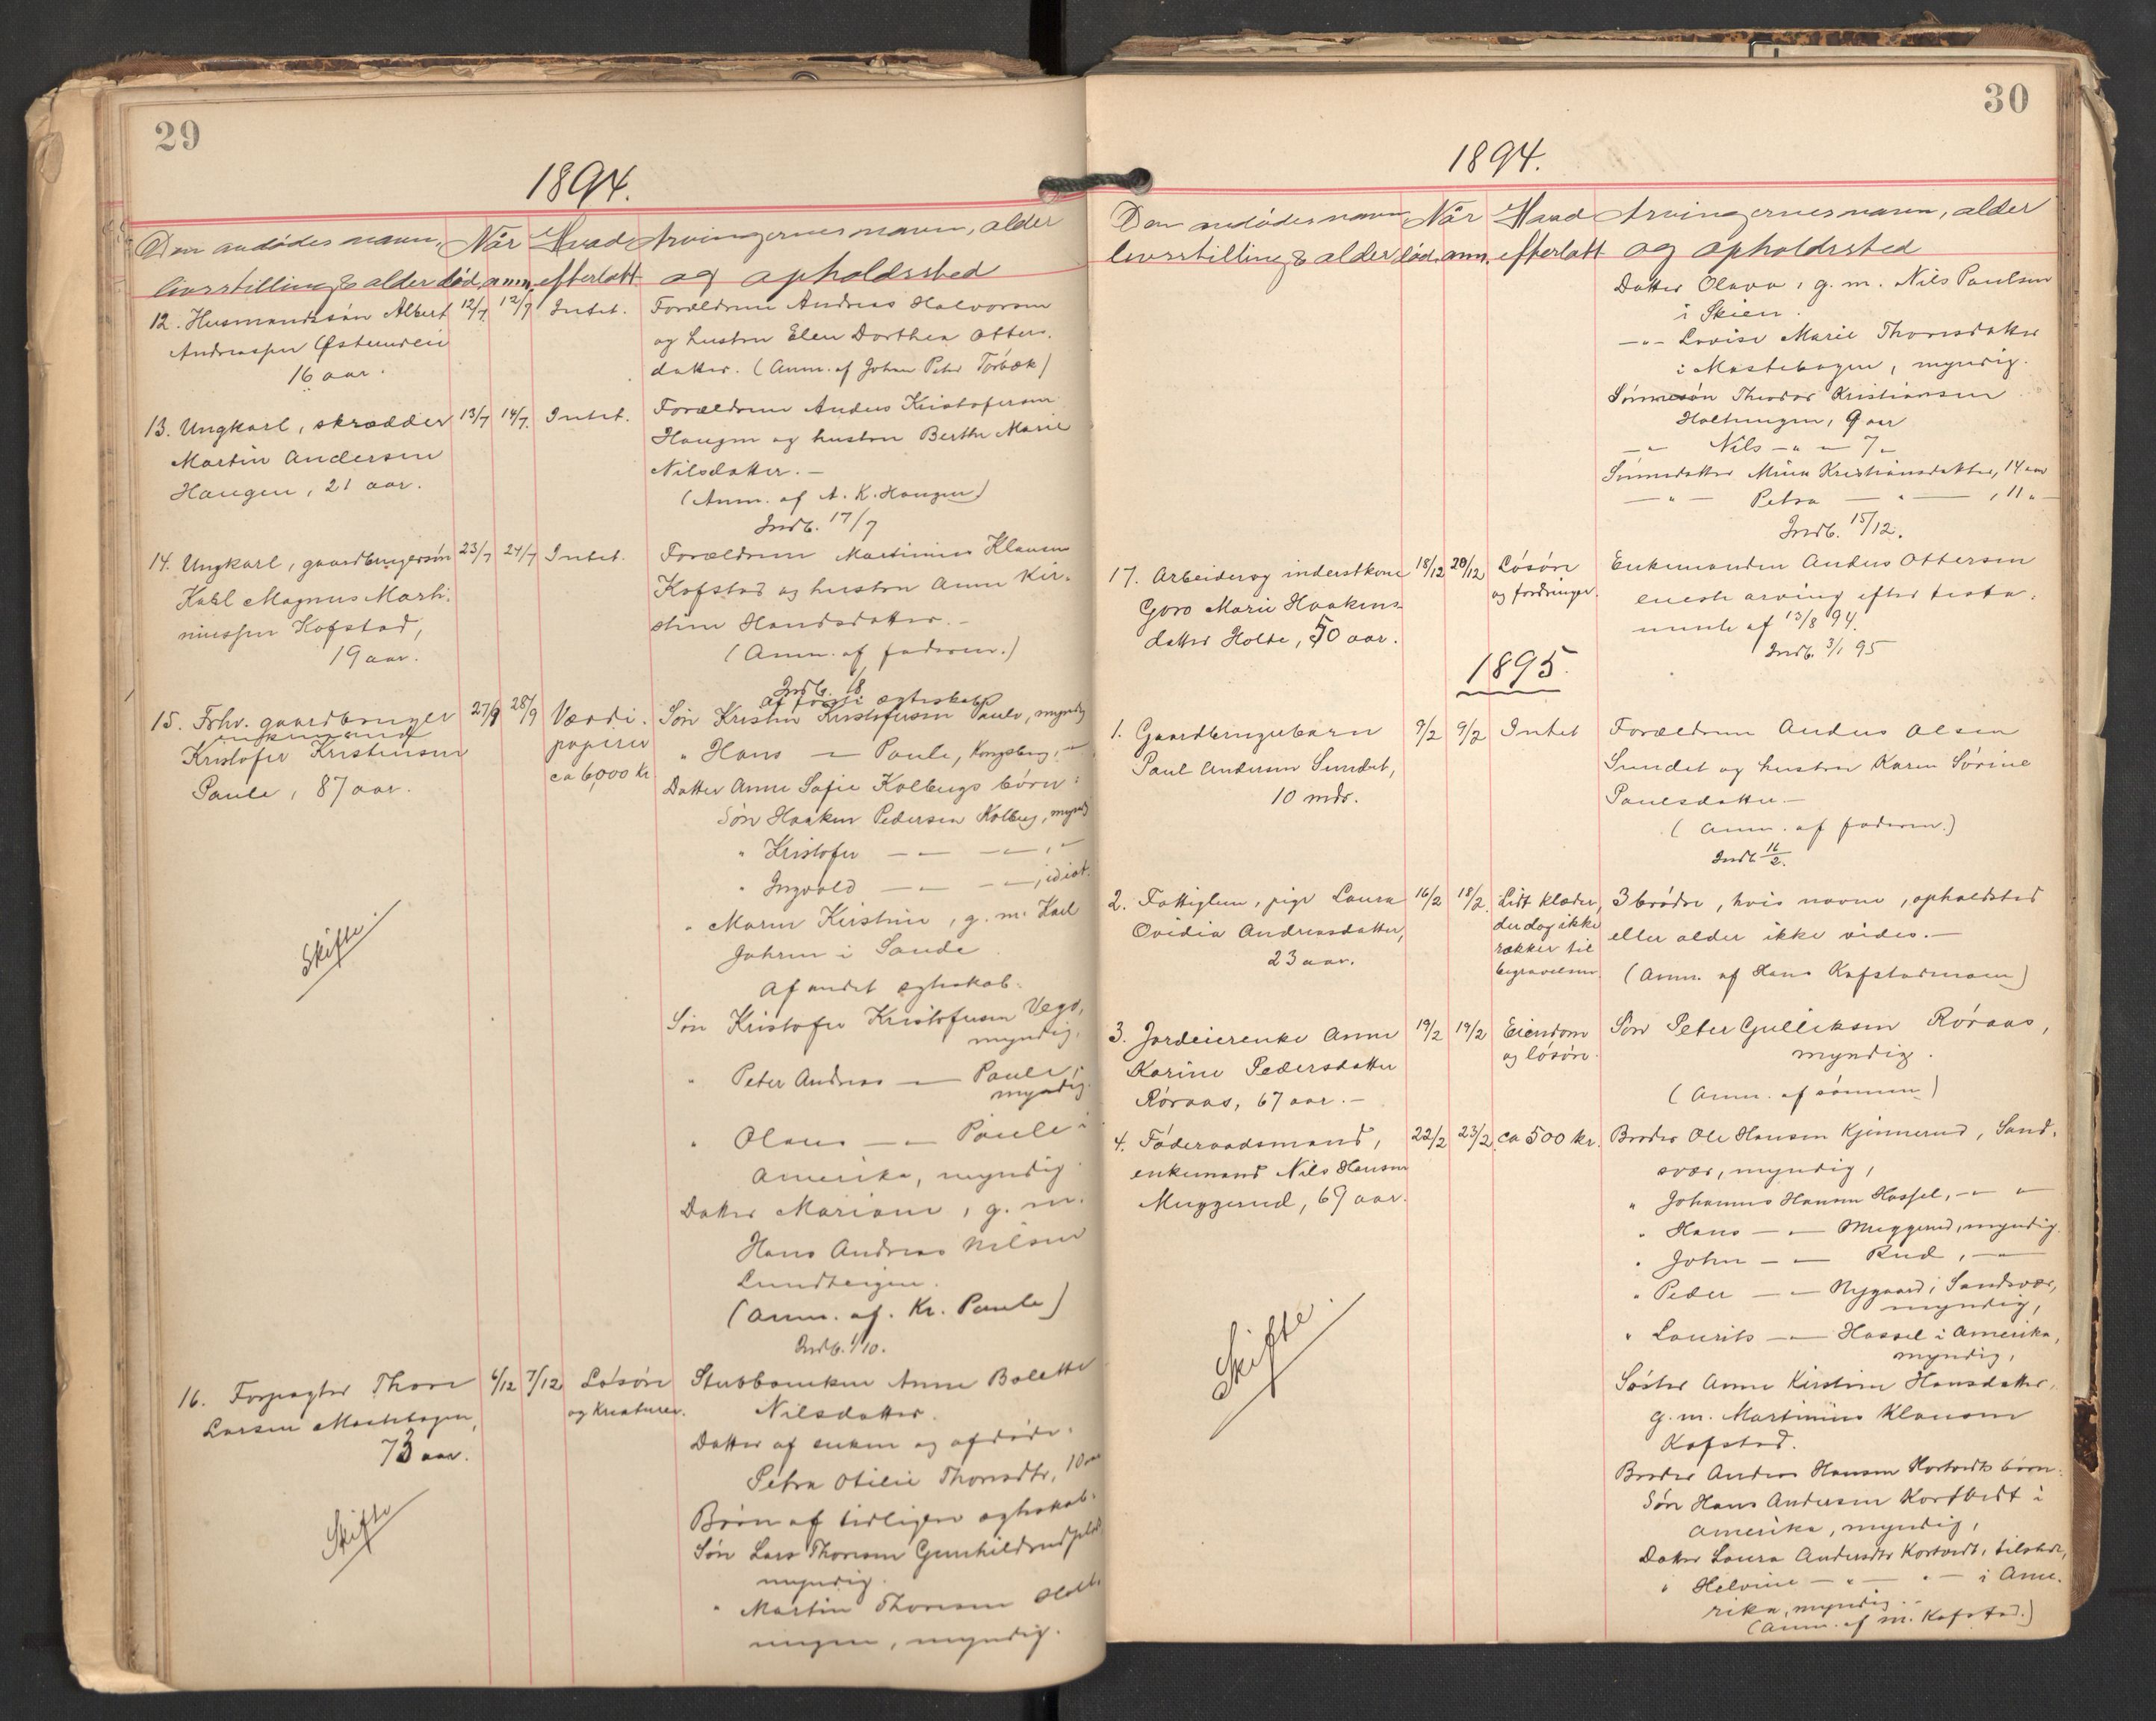 29
1894.
Den avdødes navn, Når Hvad Arvingernes navn, alder
livsstilling & alder død. anm. efterlatt og opholdssted
12. Husmandssøn Albert 12/7 12/7 Intet. Forældrene Andreas Halvorsen
Andreassen Østenveie og hustru Elen Dorthea Otters-
16 aar. datter. (Anm. af Johan Peter Torbæk)
13. Ungkarl, skrædder 13/7 14/7. Intet. Forældrene Anders Kristofersen
Martin Andersen Haugen og hustru Berthe Marie
Haugen, 21 aar. Nilsdatter. —
(Anm. af A. K. Haugen)
Indb. 17/7
14. Ungkarl, gaardbrugersøn 23/7 24/7 Intet. Forældrene Martinius Klausen
Karl Magnus Marti- Kofstad og hustru Anne Kir-
niussen Kofstad, stine Handsdatter. —
19 aar. (Anm. af faderen.)
Indb. 18
af første ægteskab
15. Frhv. gaardbruger 27/9 28/9 Værdi- Søn Kristen Kristofersen Paule, myndig
enkemand
Kristofer Kristensen papirer " Hans — " — Paule, Kongsberg, — "
Paule, 87 aar. ca 6,000 kr Datter Anne Sofie Kolbergs børn:
Søn Haaken Pedersen Kolberg, myndig
" Kristofer — " — — " —, "
" Ingvald — " — — " —, idiot.
" Maren Kirstine, g. m. Karl
Johren i Sande
Skifte
Af andet ægteskab:
Søn Kristofer Kristofersen Vego,
myndig.
" Peter Andreas — " — Paule,
myndig.
" Olaus — " — Paule i
Amerika, myndig.
Datter Mariane, g. m.
Hans Andreas Nilsen
Lundteigen.
(Anm. af. Kr. Paule)
Indb. 1/10.
16. Forpagter Thore 6/12 7/12 Løsøre Stubboenken Anne Bolette
Larsen Mastebogen, og Kreaturer. Nilsdatter.
73 aar. Datter af enken og afdøde:
Petra Otilie Thoresdtr, 10 aar
Skifte
Børn af tidligere ægteskab:
Søn Lars Thoresen Gunhildrudplds
myndig.
" Martin Thoresen Holt-
ungen, myndig.
30
1894.
Den avdødes navn Når Hvad Arvingernes navn, alder
livsstilling & alder død. anm. efterlatt og opholdssted
Datter Olava, g. m. Nils Paulsen
i Skien.
— " — Lovise Marie Thoresdatter
i Mastebogen, myndig.
Sønnesøn Theodor Kristiansen
Holtungen, 9 aar
— " Nils — " — 7 "
Sønnedatter Mina Kristiansdatter, 14 aar
— " — Petra — " —, 11 "
Indb. 15/12.
17. Arbeider og inderstkone 18/12 20/12 Løsøre Enkemanden Anders Ottersen
Goro Marie Haakens- og fordringer. eneste arving efter testa-
datter Holte, 50 aar. mente af 13/8 94.
Indb. 3/1 95
1895.
1. Gaardbrugerbarn 7/2 9/2 Intet Forældrene Anders Olsen
Paul Andersen Sundet, Sundet og hustru Karen Sørine
10 mdr. Paulsdatter —
(Anm. af faderen.)
Indb. 16/2.
2. Fattiglem, pige Laura 16/2 18/2. Lidt klæder, 3 brødre, hvis navne, opholdsted
Ovidia Andreasdatter, der dog ikke eller alder ikke vides. —
23 aar. rækker til
begravelsen. (Anm. af Hans Kofstadmoen)
3. Jordeierenke Anne 19/2 19/2 Eiendom Søn Peter Gulliksen Røraas,
Karine Pedersdatter og løsøre. myndig.
Røraas, 67 aar. — (Anm. af sønnen)
4. Føderaadsmand, 22/2 23/2 ca 500 kr. Broder Ole Hansen Kjennerud, Sand-
enkemand Nils Hansen svær, myndig,
Muggerud, 69 aar. " Johannes Hansen Hassel, — " "
" Hans — " — Muggerud, myndig.
" John — " — Rud, — " —
" Peder — " — Nygaard i Sandsvær,
myndig,
" Laurits — " — Hassel i Amerika,
myndig,
Skifte
Søster Anne Kirstine Hansdatter,
g. m. Martinius Klausen
Kofstad.
Broder Anders Hansen Kortvedts børn:
Søn Hans Andersen Kortvedt i
Amerika, myndig,
Datter Laura Andersdtr Kortvedt, tilstede,
" Helvine — " — " — i Ame-
rika, myndig. —
(Anm. af M. Kofstad.)